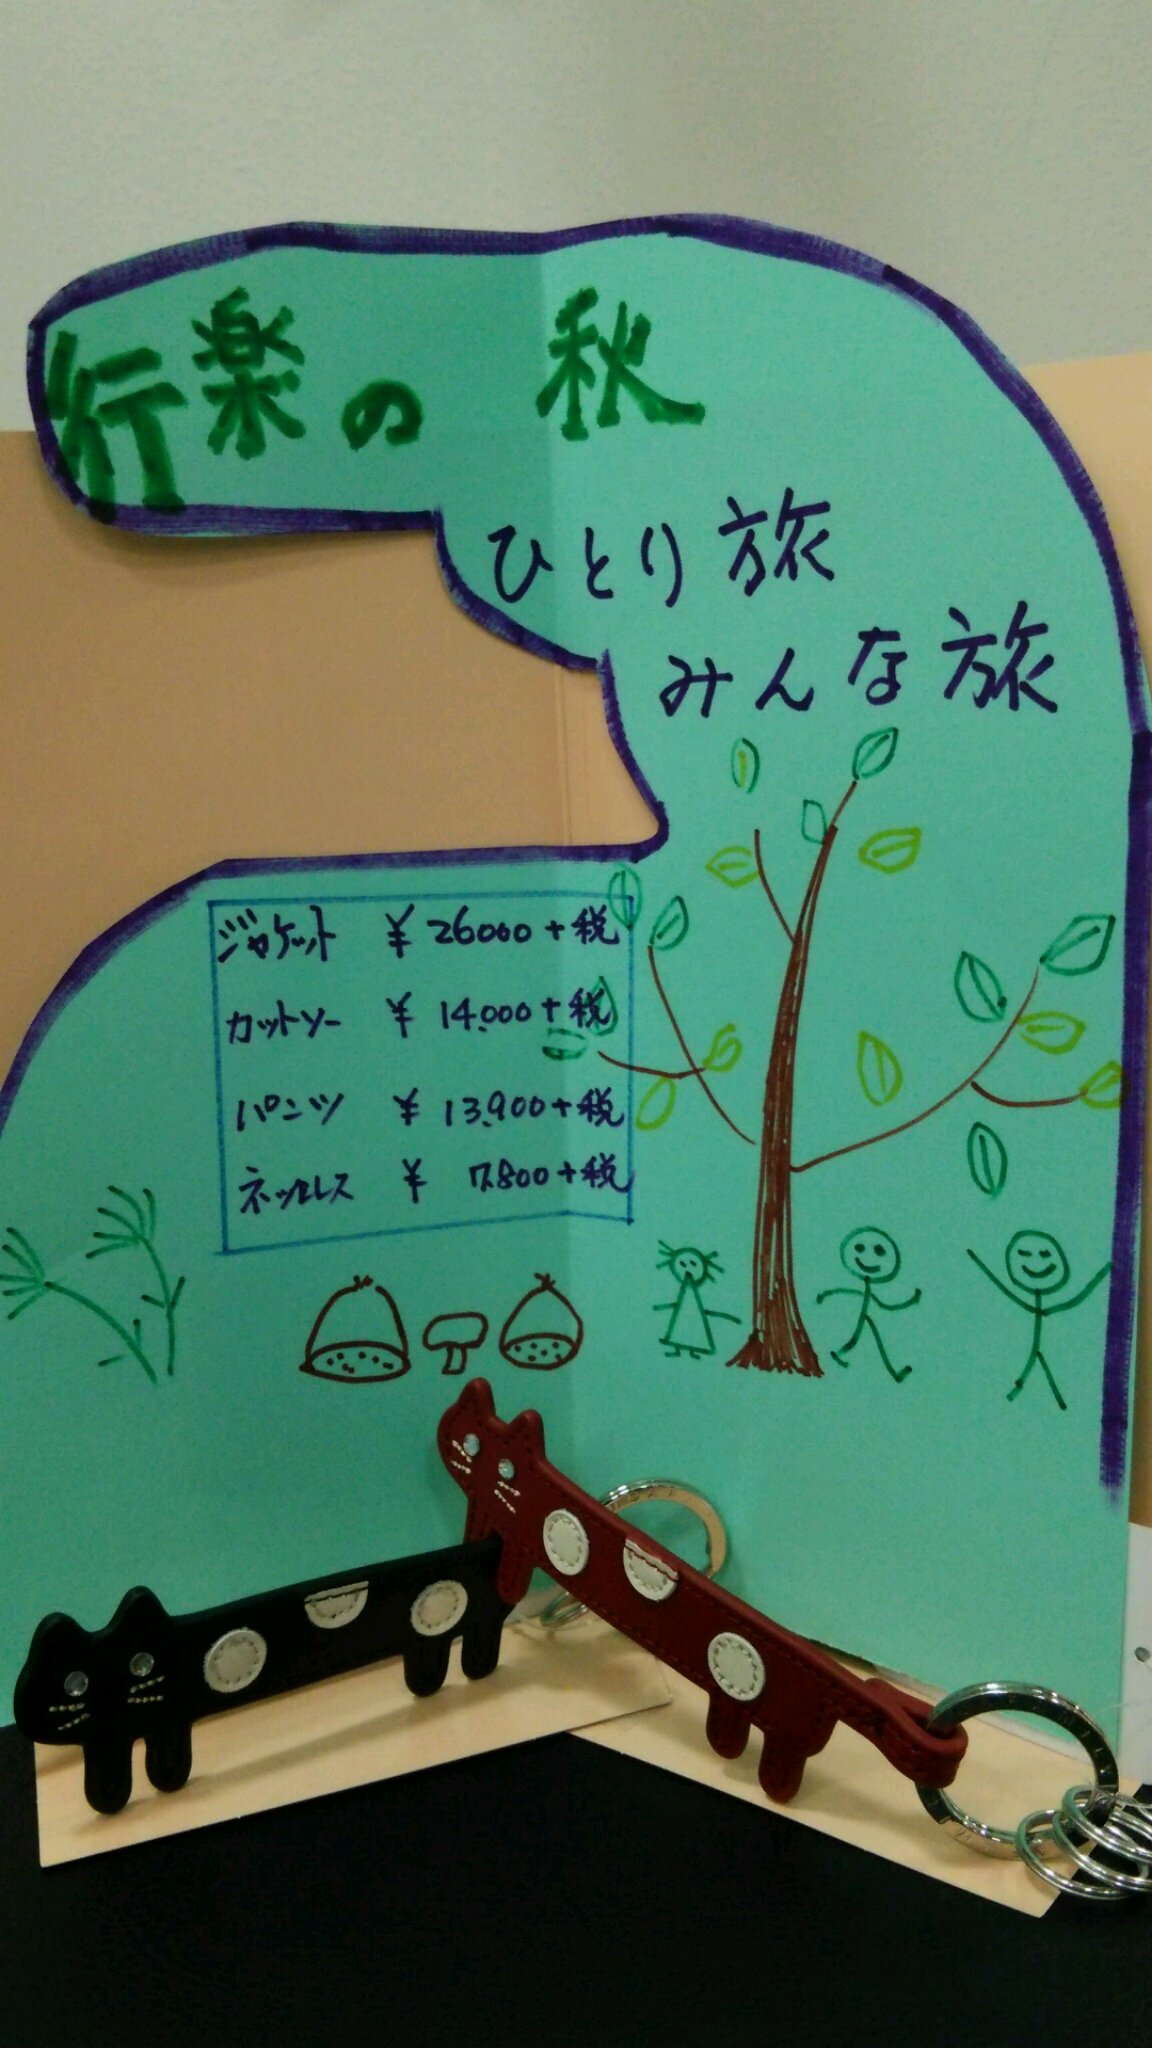 行楽の 秋
ひとり旅
みんな旅
ジャケット ¥26000+税
カットソー ¥14,000+税
パンツ ¥13,900+税
ネックレス ¥7,800+税